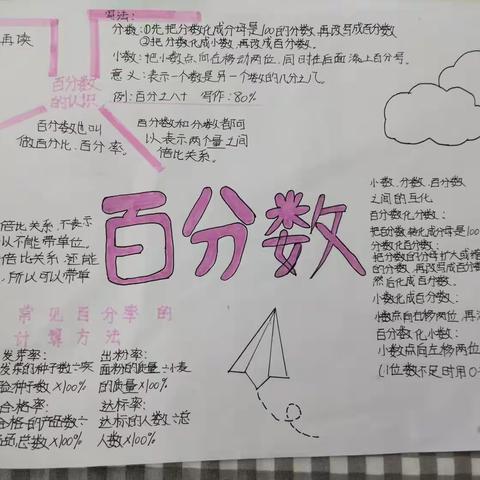 再读
写法:
分数:①先把分数化成分母是100的分数,再改写成百分数
②把分数化成小数,再改成百分数。
小数:把小数点向右移动两位,同时在后面添上百分号。
意义:表示一个数是另一个数的几分之几
例:百分之八十 写作:80%
百分数
的认识
百分数也叫
做百分比、百分率。
百分数和分数都可
以表示两个量之间
倍比关系。
百分数
倍比关系,不表示
以不能带单位。
倍比关系,还能
,所以可以带单
小数、分数、百分数
之间的互化
百分数化分数:
把百分数转化成分母是100
分数化百分数:
把分数的分母扩大或缩
的分数,再改写成百分数
然后化成百分数。
小数化成百分数:
小数点向右移两位,再添
百分数化小数:
小数点向左移两位
(位数不足时用0
常见百分率的
计算方法
发芽率:
发芽的种子数÷实
验种子数×100%
合格率:
合格的产品数÷
产品总数×100%
出粉率:
面粉的质量÷小麦
的质量×100%
达标率:
达标的人数÷总
人数×100%